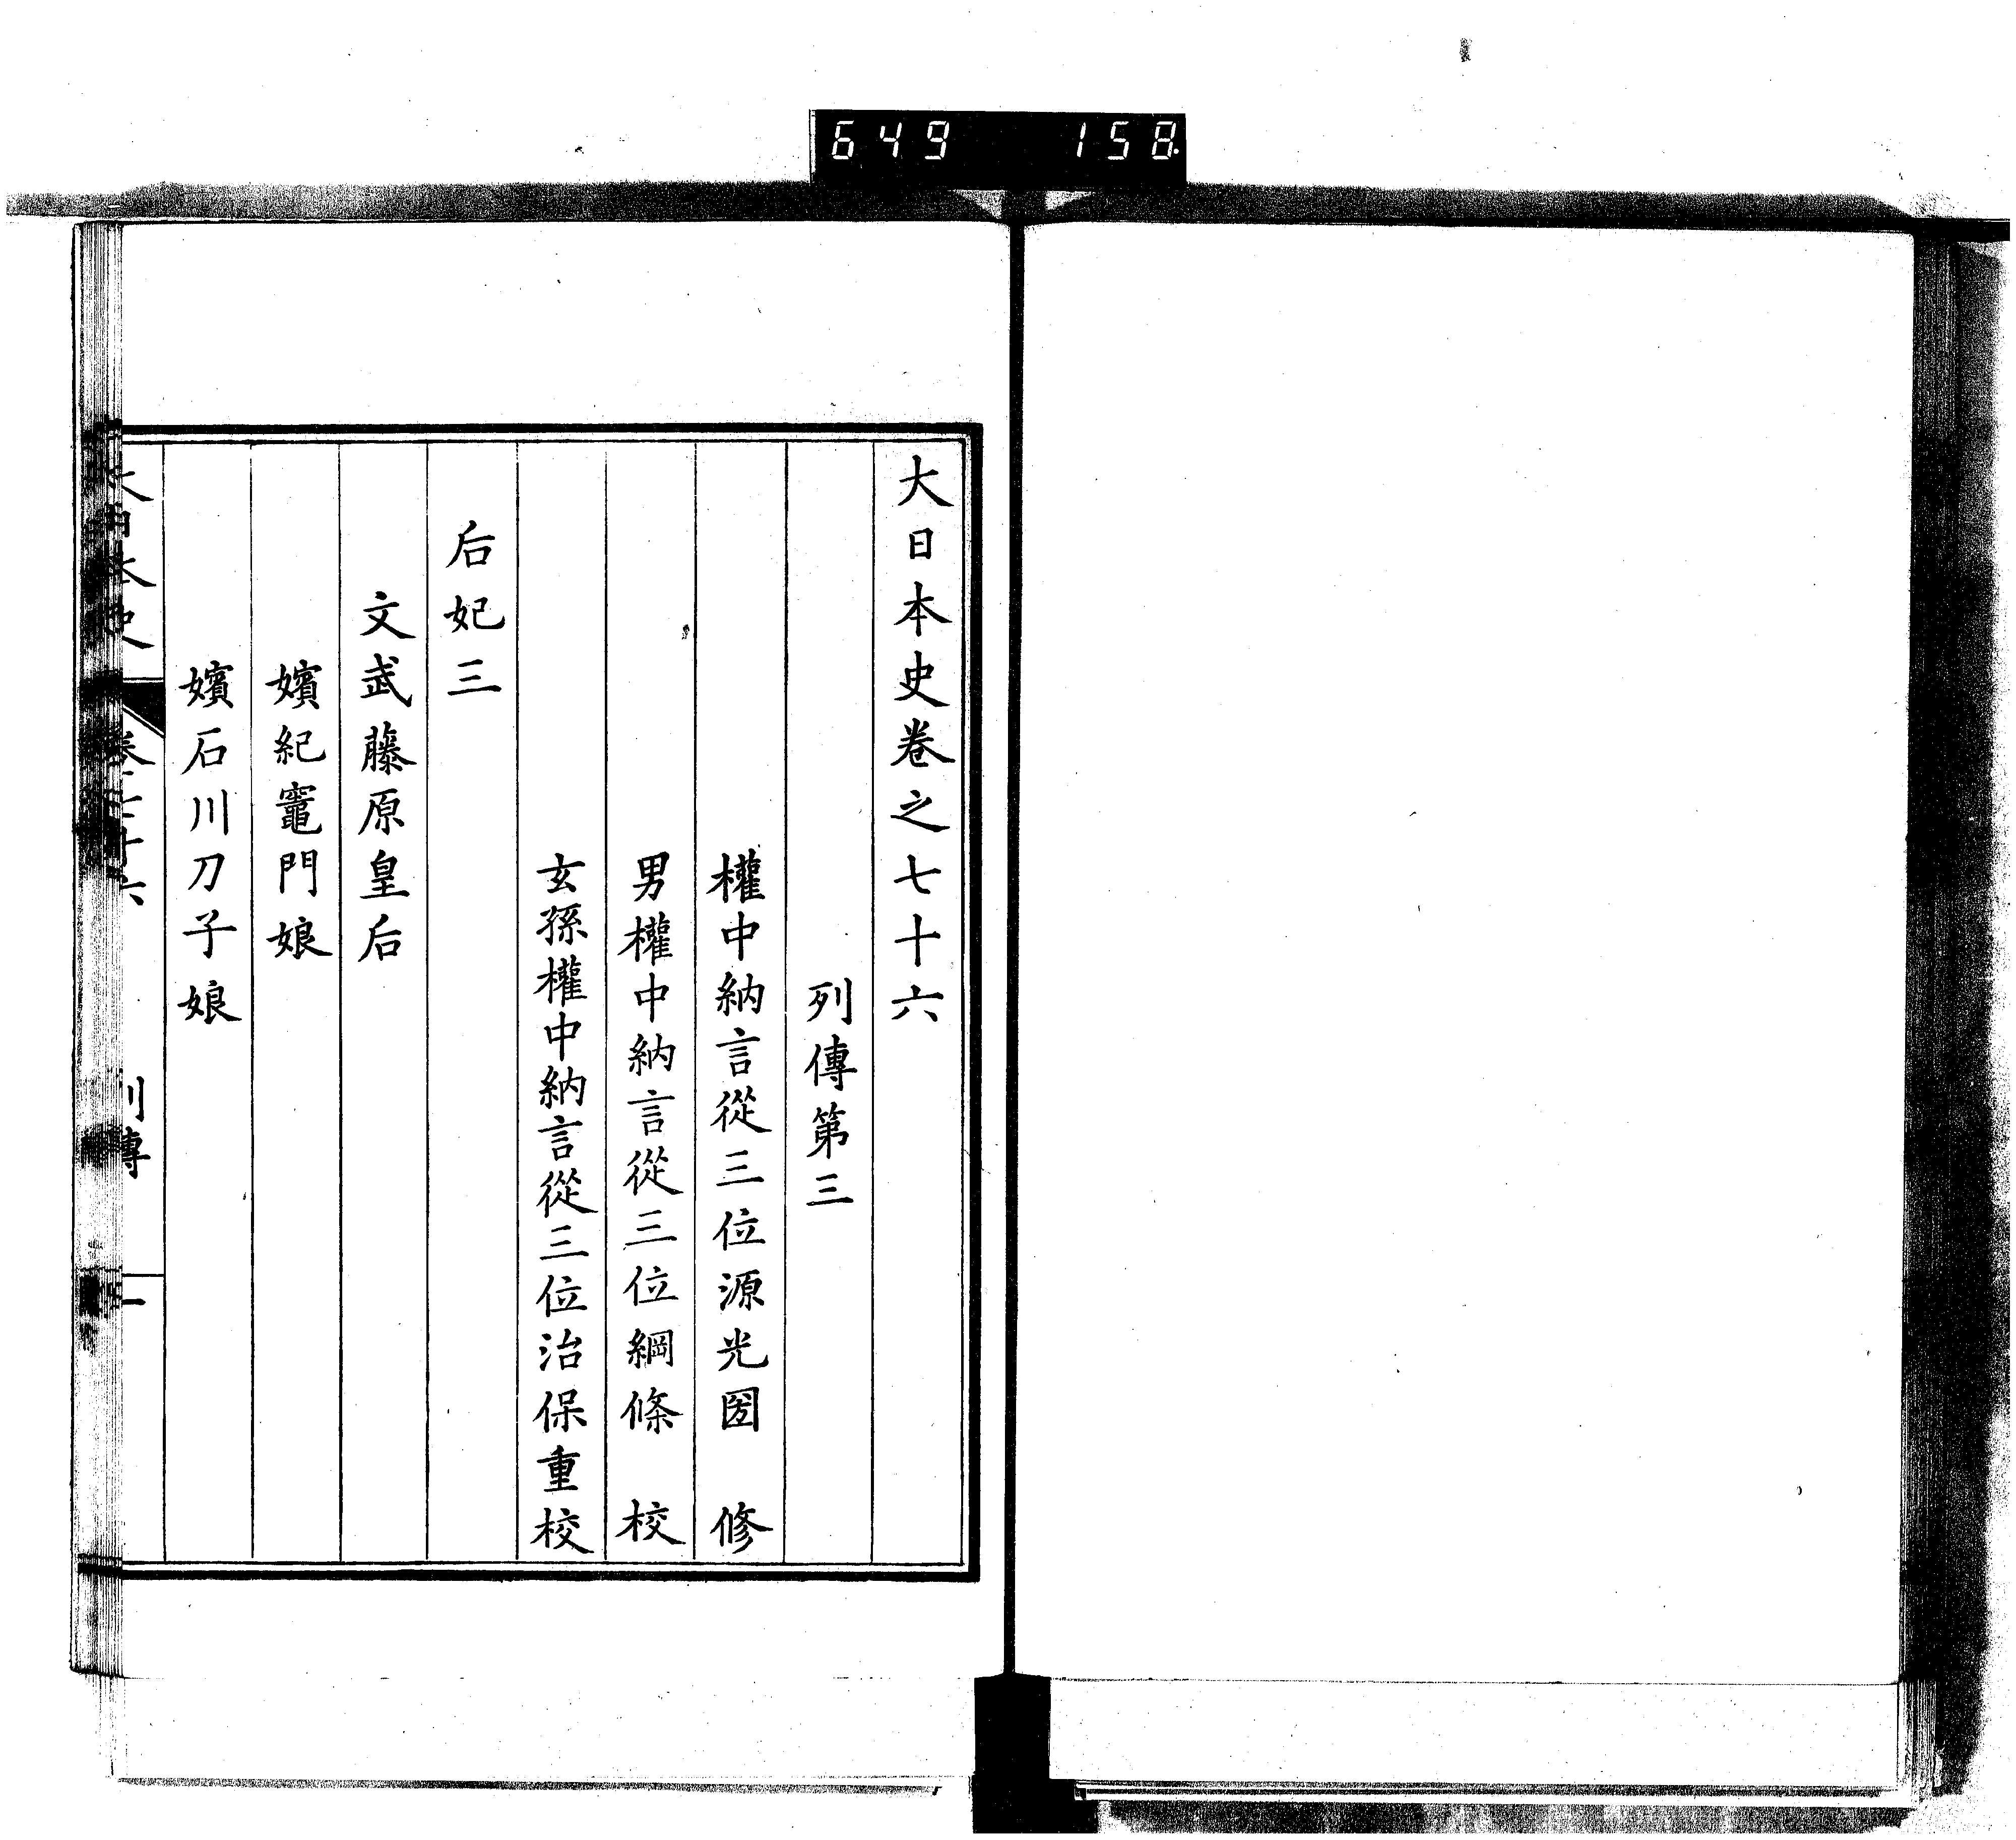 649 158
大日本史卷之七十六
列傳第三
權中納言從三位源光圀 修
男權中納言從三位綱條 校
玄孫權中納言從三位治保重校
后妃三
文武藤原皇后
嬪紀竈門娘
嬪石川刀子娘
大日本史 卷七十六 列傳 一